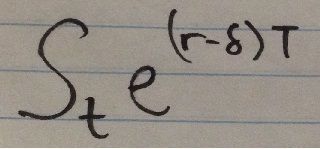 S_t e^{(r-δ)T}